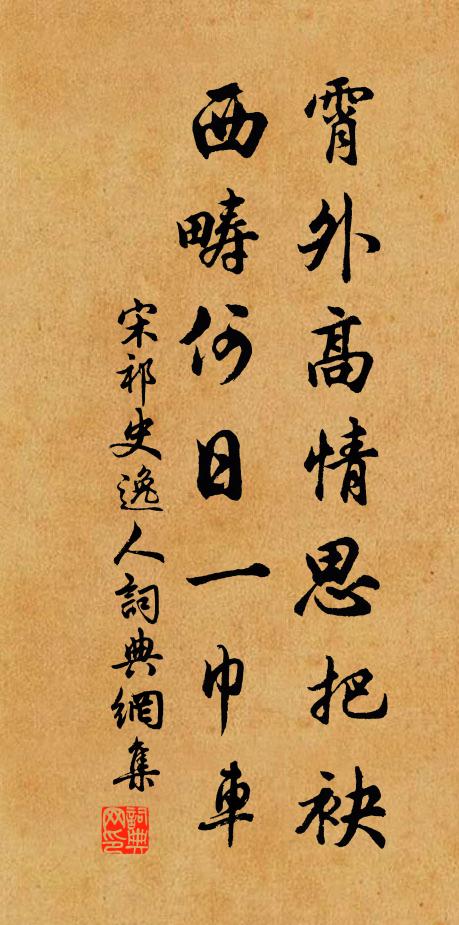 霄外高情思把袂
西疇何日一巾車
宋祁史逸人詞典網集
詞典網印